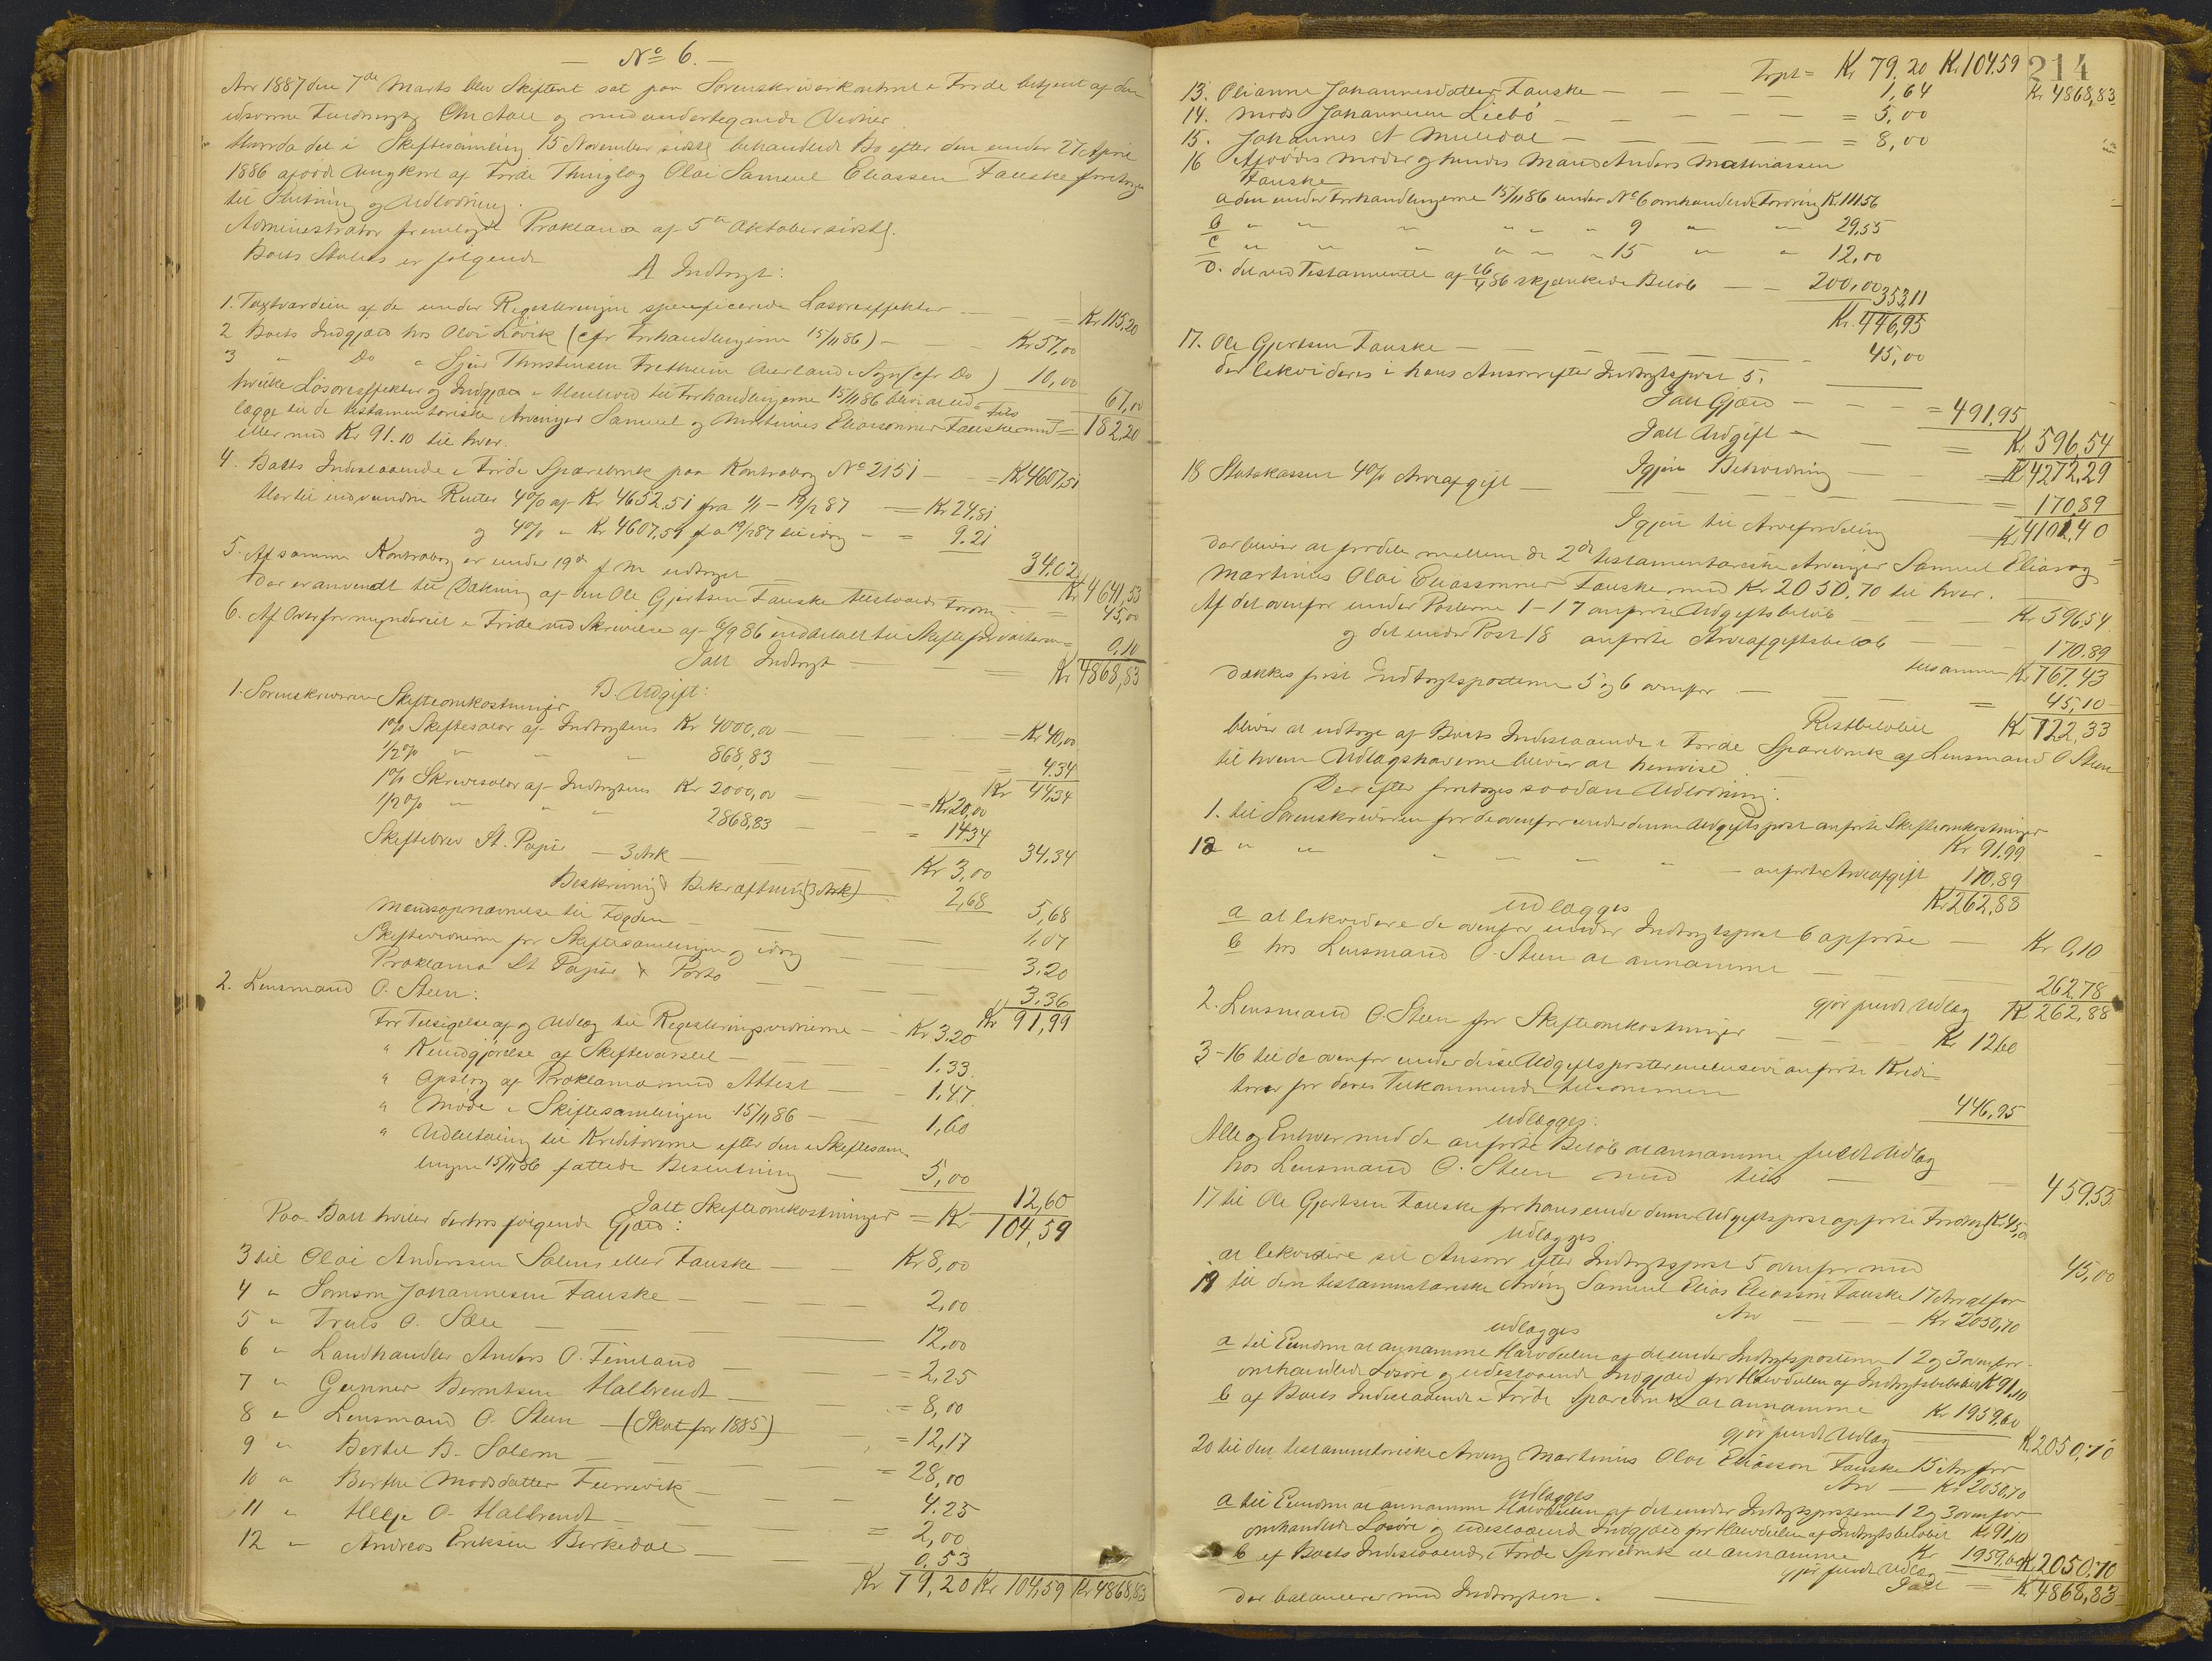 — No 6. —
Aar 1887 den 7de Marts blev Skifteret sat paa Sorenskriverkontoret i Førde betjent af den
edsvorne Fuldmægtig Chr Aall og medundertegnede Vidner.
Hvorda det i Skiftesamling 15 November sidstl behandlede Bo efter den under 27 April
1886 afdøde Ungkarl af Førde Thinglag Olai Samuel Eliassen Fauske foretoges
til Slutning og Udlodning.
Administrator fremlagde Proklama af 5te Oktober sidstl.
Boets Status er følgende
A Indtægt:
1. Taxtværdien af de under Registreringen specificerede Løsøreeffekter — — = Kr 115,20
2 Boets Indgjæld hos Olai Løvik (cfr Forhandlingerne 15/11 86) — — Kr 57,00
3 " Do " Sjur Thorstensen Fretheim Aurland i Sogn (cfr Do) 10,00
67,00
hvilke Løsøreeffekter og Indgjæld i Henhold til Forhandlingerne 15/11 86 bliver at ud= tils
lægge til de testamentariske Arvinger Samuel og Martinus Eliassønner Fauske med = 182,20
eller med Kr 91.10 til hver.
4. Boets Indestaaende i Førde Sparebank paa Kontrabog No 2151 — = Kr 4607,51
Hertil indvundne Renter 4% af Kr 4652.51 fra 1/1 – 19/2 87 — = Kr 24,81
og 4% " Kr 4607.51 fra 19/2 87 til idag — = 9.21
34,02
Kr 4641,53
5. Af samme Kontrabog er under 19de f. M. udtaget
der er anvendt til Dækning af den Ole Gjertsen Fauske tilstaaede Fordring — = 45,00
6. Af Overformynderiet i Førde ved Skrivelse af 6/9 86 indbetalt til Skifteforvalteren = 0,10
Ialt Indtægt — — = Kr 4868,83
B. Udgift:
1. Sorenskriveren Skifteomkostninger
1% Skiftesalær af Indtægtens Kr 4000,00 — — = Kr 40,00
1/2% " " " 868,83 — — = 4.34
Kr 44,34
1% Skrivesalær af Indtægtens Kr 2000,00 — = Kr 20,00
1/2% " " " 2868,83 — = 14.34
34,34
Skiftebrev St. Papir — 3 Ark — — Kr 3,00
Beskrivning & Bekræftning (3 Ark) — 2,68
5,68
Mændsopnævnelse til Fogden — — 1,07
Skiftevidnerne for Skiftesamlingen og idag — 3.20
Proklama St Papir & Porto — — 3,36
Kr 91,99
2. Lensmand O. Steen:
For Tilsigelse af og Udlæg til Registreringsvidnerne — Kr 3.20
" Kundgjørelse af Skiftevarslet — 1.33
" Opslag af Proklama med Attest — 1,47
" Møde i Skiftesamlingen 15/11 86 — 1,60
" Udbetaling til Kreditorerne efter den i Skiftesam
lingen 15/11 86 fattede Beslutning — 5,00
12,60
Ialt Skifteomkostninger = Kr 104,59
Paa Boet hviler derhos følgende Gjæld:
3 til Olai Anderssen Solem eller Fauske — — Kr 8,00
4 " Samson Johannesen Fauske — — 2,00
5 " Truls O. Sæle — — 12,00
6 " Landhandler Anders O. Fimland — = 2,25
7 " Gunner Berntsen Halbrendt — = 8,00
8 " Lensmand O. Steen — (Skat for 1885) — = 12,17
9 " Bertel B. Solem — = 28,00
10 " Berthe Madsdatter Furevik — 4.25
11 " Helje O. Halbrendt — = 2,00
12 " Andreas Eriksen Birkedal — 0,53
Kr 79,20 Kr 104,59 Kr 4868,83
214
Trspt = Kr 79,20 Kr 104,59 Kr 4868,83
13. Olianne Johannesdatter Fauske — — — 1,64
14. Mads Johannesen Liebø — — — = 5,00
15. Johannes A Muledal — — = 8,00
16 Afdødes Moder og hendes Mand Anders Mathiassen
Fauske
a den under Forhandlingerne 15/11 86 under No 6 omhandlede Fordring Kr 111.56
b " " " " " " 9 " " 29,55
c " " " " " " 15 " " 12,00
d. det ved Testamentet af 26/4 86 skjænkede Beløb — — 200,00
353,11
Kr. 446,95
17. Ole Gjertsen Fauske — — — 45,00
der likvideres i hans Ansvar efter Indtægtspost 5.
Ialt Gjæld — — = 491,95
Ialt Udgift — — = Kr 596,54
Igjen Beholdning — = Kr 4272,29
18 Statskassen 4% Arveafgift — — = 170,89
Igjen til Arvefordeling Kr 4101,40
der bliver at fordele mellem de 2de testamentariske Arvinger Samuel Elias og
Martinus Olai Eliassønner Fauske med Kr 2050.70 til hver.
Af det ovenfor under Posterne 1–17 anførte Udgiftsbeløb — — Kr 596,54
og det under Post 18 anførte Arveafgiftsbeløb — — 170.89
tilsammen Kr 767,43
dækkes først Indtægtsposterne 5 og 6 ovenfor — — = 45,10
Restbeløbet Kr 722,33
bliver at udtage af Boets Indestaaende i Førde Sparebank af Lensmand O Steen
til hvem Udlægshaverne bliver at henvise
Derefter foretoges saadan Udlodning:
1. til Sorenskriveren for de ovenfor under denne Udgiftspost anførte Skifteomkostninger
Kr 91.99
18 " " " " " " — anførte Arveafgift 170,89
Kr 262,88
udlægges
a at likvidere de ovenfor under Indtægtspost 6 opførte — Kr 0,10
b hos Lensmand O. Steen at annamme — — 262,78
gjør fuldt Udlæg Kr 262,88
2. Lensmand O. Steen for Skifteomkostninger — — Kr 12.60
3–16 til de ovenfor under disse Udgiftsposter inclusive anførte Kredi-
torer for deres Tilkommende tilsammen 446,95
udlægges:
Alle og Enhver med de anførte Beløb at annamme fuldt Udlæg
hos Lensmand O. Steen med tils — — 459,55
17 til Ole Gjertsen Fauske for hans under denne Udgiftspost opførte Fordring Kr 45,00
udlægges
at likvidere sit Ansvar efter Indtægtspost 5 ovenfor med 45,00
19 til den testamentariske Arving Samuel Elias Eliassøn Fauske 17 Aar gl for
Arv — — Kr 2050,70
udlægges
a til Eiendom at annamme Halvdelen af de under Indtægtsposterne 1 2 og 3 ovenfor
omhandlede Løsøre og udestaaende Indgjæld for Halvdelen af Indtægtsbeløbet Kr 91,10
b af Boets Indestaaende i Førde Sparebank at annamme Kr 1959,60
gjør fuldt Udlæg Kr 2050,70
20 til den testamentariske Arving Martinus Olai Eliassøn Fauske 15 Aar for
Arv — Kr 2050,70
udlægges
a til Eiendom at annamme Halvdelen af det under Indtægtsposterne 1 2 og 3 ovenfor
omhandlede Løsøre og udestaaende Indgjæld for Halvdelen af Indtægtsbeløbet Kr 91,10
b af Boets Indestaaende i Førde Sparebank at annamme Kr 1959,60
gjør fuldt Udlæg Kr 2050,70
Ialt = Kr 4868,83
der balancerer med Indtægten.